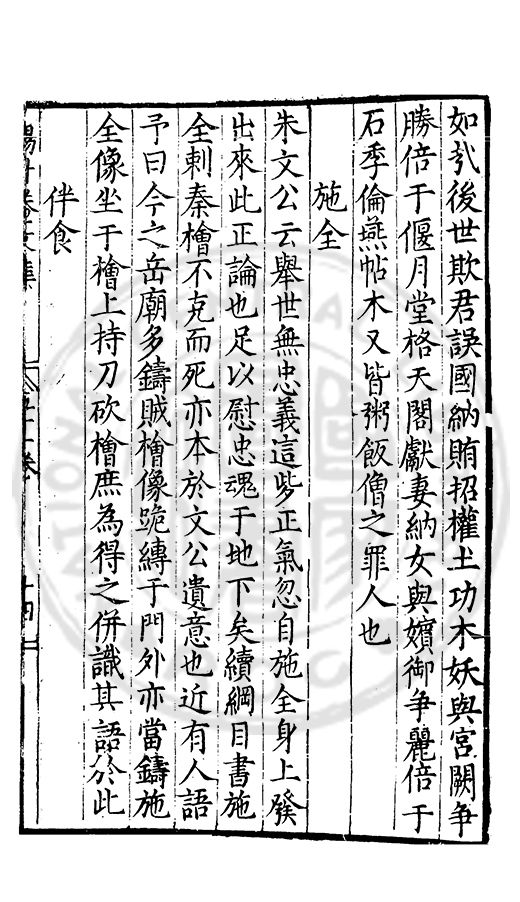 如於後世欺君誤國納賄招權土功木妖與宮闕爭
勝倍于偃月堂格天閣獻妻納女與嬪御爭麗倍于
石季倫燕帖木又皆粥飯僧之罪人也
施全
朱文公云舉世無忠義這些正氣忽自施全身上發
出來此正論也足以慰忠魂于地下矣續綱目書施
全刺秦檜不克而死亦本於文公遺意也近有人語
予曰今之岳廟多鑄賊檜像跪縛于門外亦當鑄施
全像坐于檜上持刀砍檜庶為得之併識其語於此
伴食